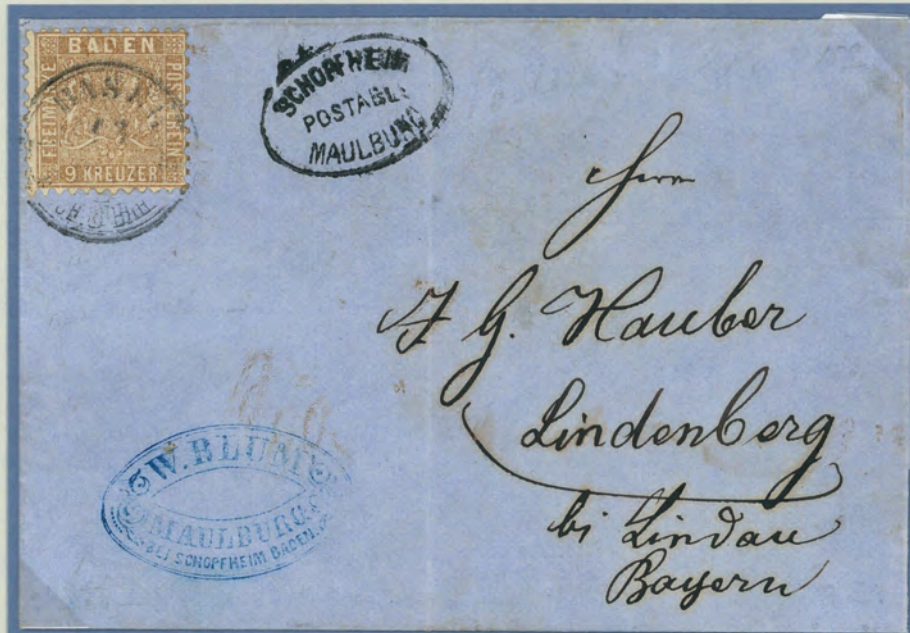 BADEN
FREIMARKE
POSTVEREIN
9 KREUZER
SCHOPFHEIM
POSTABL.
MAULBURG
Herrn
J. G. Hauber
Lindenberg
bi Lindau
Bayern
W. BLUM
MAULBURG
BEI SCHOPFHEIM BADEN.